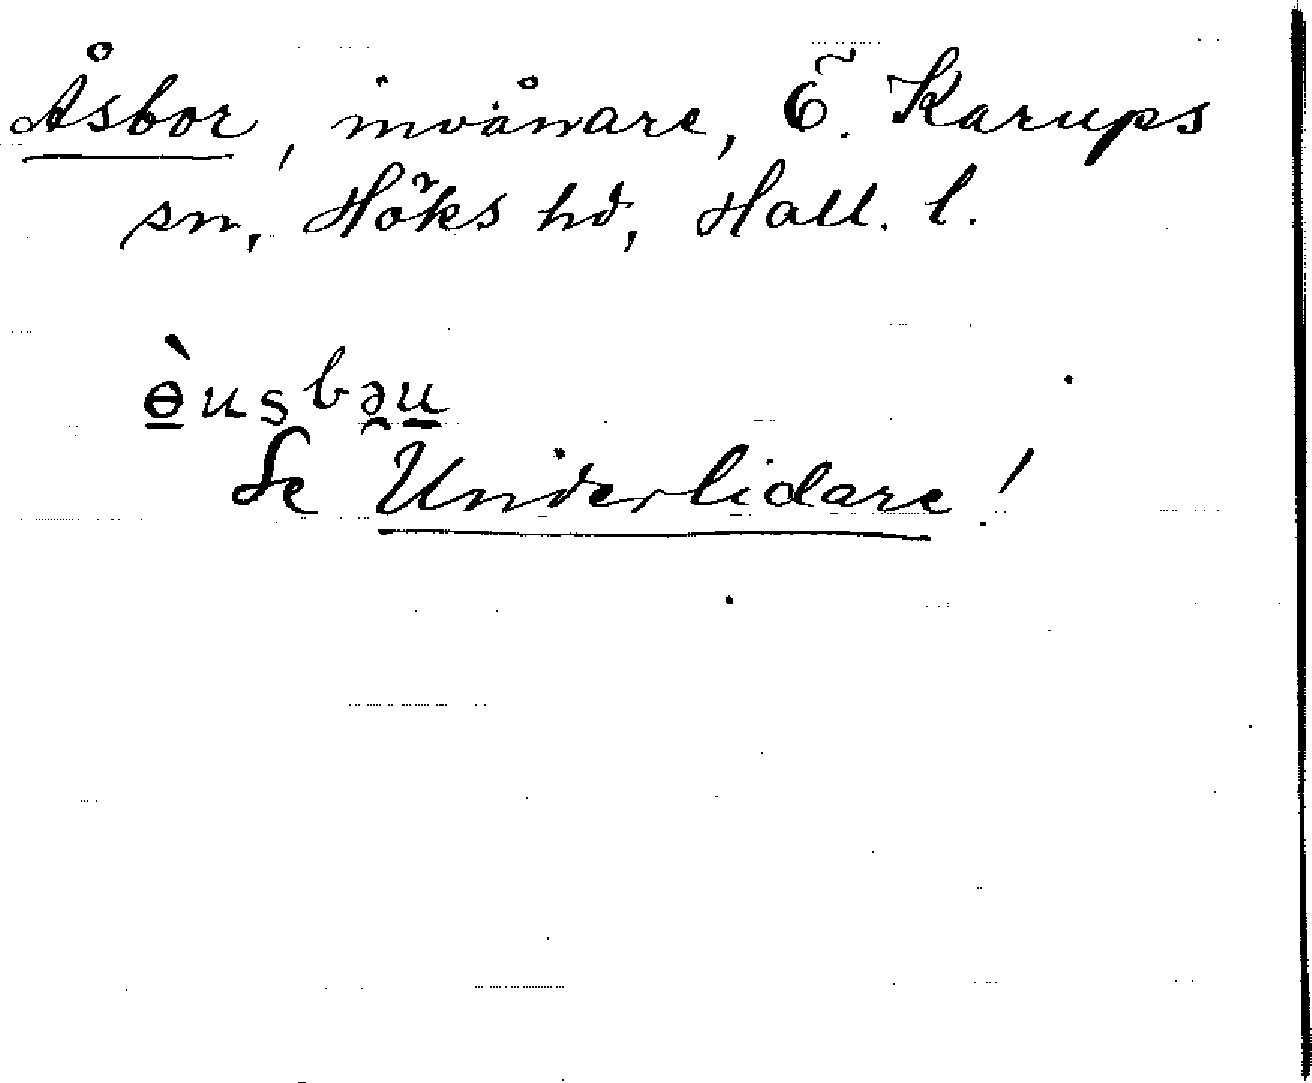 Åsbor, invånare, Ö. Karups
sn, Höks hd, Hall. l.
ɵ̀usbəu
Se Underlidare!